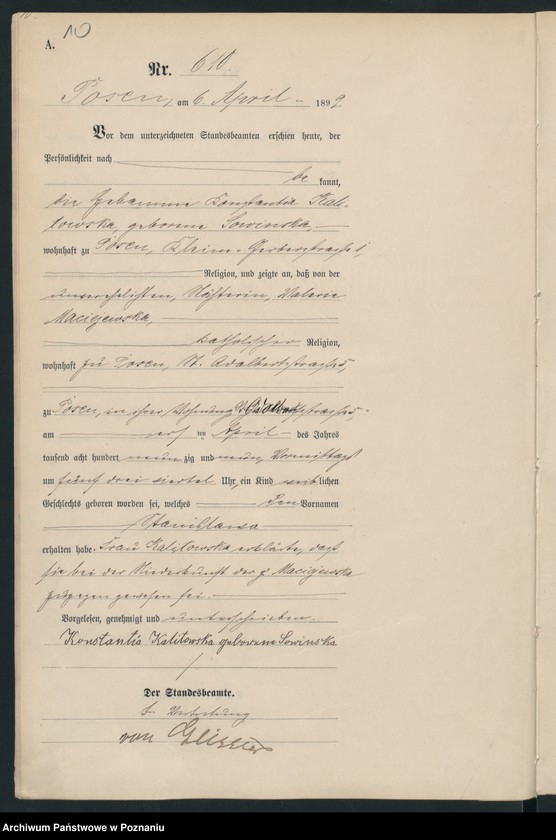 A. 10
Nr. 610.
Posen, am 6. April 1899.
Vor dem unterzeichneten Standesbeamten erschien heute, der
Persönlichkeit nach
be kannt,
die Hebamme Konstantia Kali-
towska, geborene Sowinska,
wohnhaft zu Posen, Kleine Gerberstraße
Religion, und zeigte an, daß von der
unverehelichten, Näherin, Valerie
Maciejewska,
katholischer Religion,
wohnhaft zu Posen, St. Adalbertstraße 5,
zu Posen, in ihrer Wohnung Adalbertstraße 5,
am ten April des Jahres
tausend acht hundert neun zig und neun, Vormittags
um fünf drei viertel Uhr, ein Kind weib lichen
Geschlechts geboren worden sei, welches den Vornamen
Stanislawa
erhalten habe. Frau Kalitowska erklärte, daß
sie bei der Niederkunft der p. Maciejewska
zugegen gewesen sei.
Vorgelesen, genehmigt und unterschrieben.
Konstantia Kalitowska geborene Sowinska
Der Standesbeamte.
In Vertretung
von
Archiwum Państwowe w Poznaniu